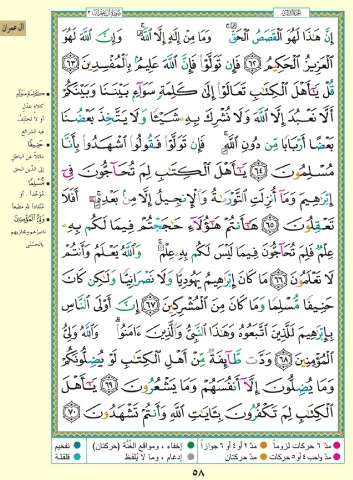 الجزء الثالث
سورة آل عمران ٣
آل عمران
إِنَّ هَٰذَا لَهُوَ ٱلْقَصَصُ ٱلْحَقُّ ۚ وَمَا مِنْ إِلَٰهٍ إِلَّا ٱللَّهُ ۚ وَإِنَّ ٱللَّهَ لَهُوَ
ٱلْعَزِيزُ ٱلْحَكِيمُ ٦٢ فَإِن تَوَلَّوْا۟ فَإِنَّ ٱللَّهَ عَلِيمٌۢ بِٱلْمُفْسِدِينَ ٦٣
قُلْ يَٰٓأَهْلَ ٱلْكِتَٰبِ تَعَالَوْا۟ إِلَىٰ كَلِمَةٍ سَوَآءٍۭ بَيْنَنَا وَبَيْنَكُمْ
أَلَّا نَعْبُدَ إِلَّا ٱللَّهَ وَلَا نُشْرِكَ بِهِۦ شَيْـًٔا وَلَا يَتَّخِذَ بَعْضُنَا
بَعْضًا أَرْبَابًا مِّن دُونِ ٱللَّهِ ۚ فَإِن تَوَلَّوْا۟ فَقُولُوا۟ ٱشْهَدُوا۟ بِأَنَّا
مُسْلِمُونَ ٦٤ يَٰٓأَهْلَ ٱلْكِتَٰبِ لِمَ تُحَآجُّونَ فِىٓ
إِبْرَٰهِيمَ وَمَآ أُنزِلَتِ ٱلتَّوْرَىٰةُ وَٱلْإِنجِيلُ إِلَّا مِنۢ بَعْدِهِۦٓ ۚ أَفَلَا
تَعْقِلُونَ ٦٥ هَٰٓأَنتُمْ هَٰٓؤُلَآءِ حَٰجَجْتُمْ فِيمَا لَكُم بِهِۦ
عِلْمٌ فَلِمَ تُحَآجُّونَ فِيمَا لَيْسَ لَكُم بِهِۦ عِلْمٌ ۚ وَٱللَّهُ يَعْلَمُ وَأَنتُمْ
لَا تَعْلَمُونَ ٦٦ مَا كَانَ إِبْرَٰهِيمُ يَهُودِيًّا وَلَا نَصْرَانِيًّا وَلَٰكِن كَانَ
حَنِيفًا مُّسْلِمًا وَمَا كَانَ مِنَ ٱلْمُشْرِكِينَ ٦٧ إِنَّ أَوْلَى ٱلنَّاسِ
بِإِبْرَٰهِيمَ لَلَّذِينَ ٱتَّبَعُوهُ وَهَٰذَا ٱلنَّبِىُّ وَٱلَّذِينَ ءَامَنُوا۟ ۗ وَٱللَّهُ وَلِىُّ
ٱلْمُؤْمِنِينَ ٦٨ وَدَّت طَّآئِفَةٌ مِّنْ أَهْلِ ٱلْكِتَٰبِ لَوْ يُضِلُّونَكُمْ
وَمَا يُضِلُّونَ إِلَّآ أَنفُسَهُمْ وَمَا يَشْعُرُونَ ٦٩ يَٰٓأَهْلَ
ٱلْكِتَٰبِ لِمَ تَكْفُرُونَ بِـَٔايَٰتِ ٱللَّهِ وَأَنتُمْ تَشْهَدُونَ ٧٠
كَلِمَةٍ سَوَاءٍ
كلام عدل
أو لا تختلف
فيه الشرائع
حَنِيفًا
مائلاً عن الباطل
إلى الدين الحق
مُسْلِمًا
موحّداً. أو
منقاداً لله مطيعاً
وَلِيُّ الْمُؤْمِنِينَ
ناصرهم ومجازيهم
بالحسنى
مدّ ٦ حركات لزوماً
مدّ ٢ أو ٤ أو ٦ جوازاً
إخفاء، ومواقع الغُنَّة (حركتان)
تفخيم
مدّ واجب ٤ أو ٥ حركات
مدّ حركتان
إدغام، وما لا يُلفَظ
قلقلة
٥٨